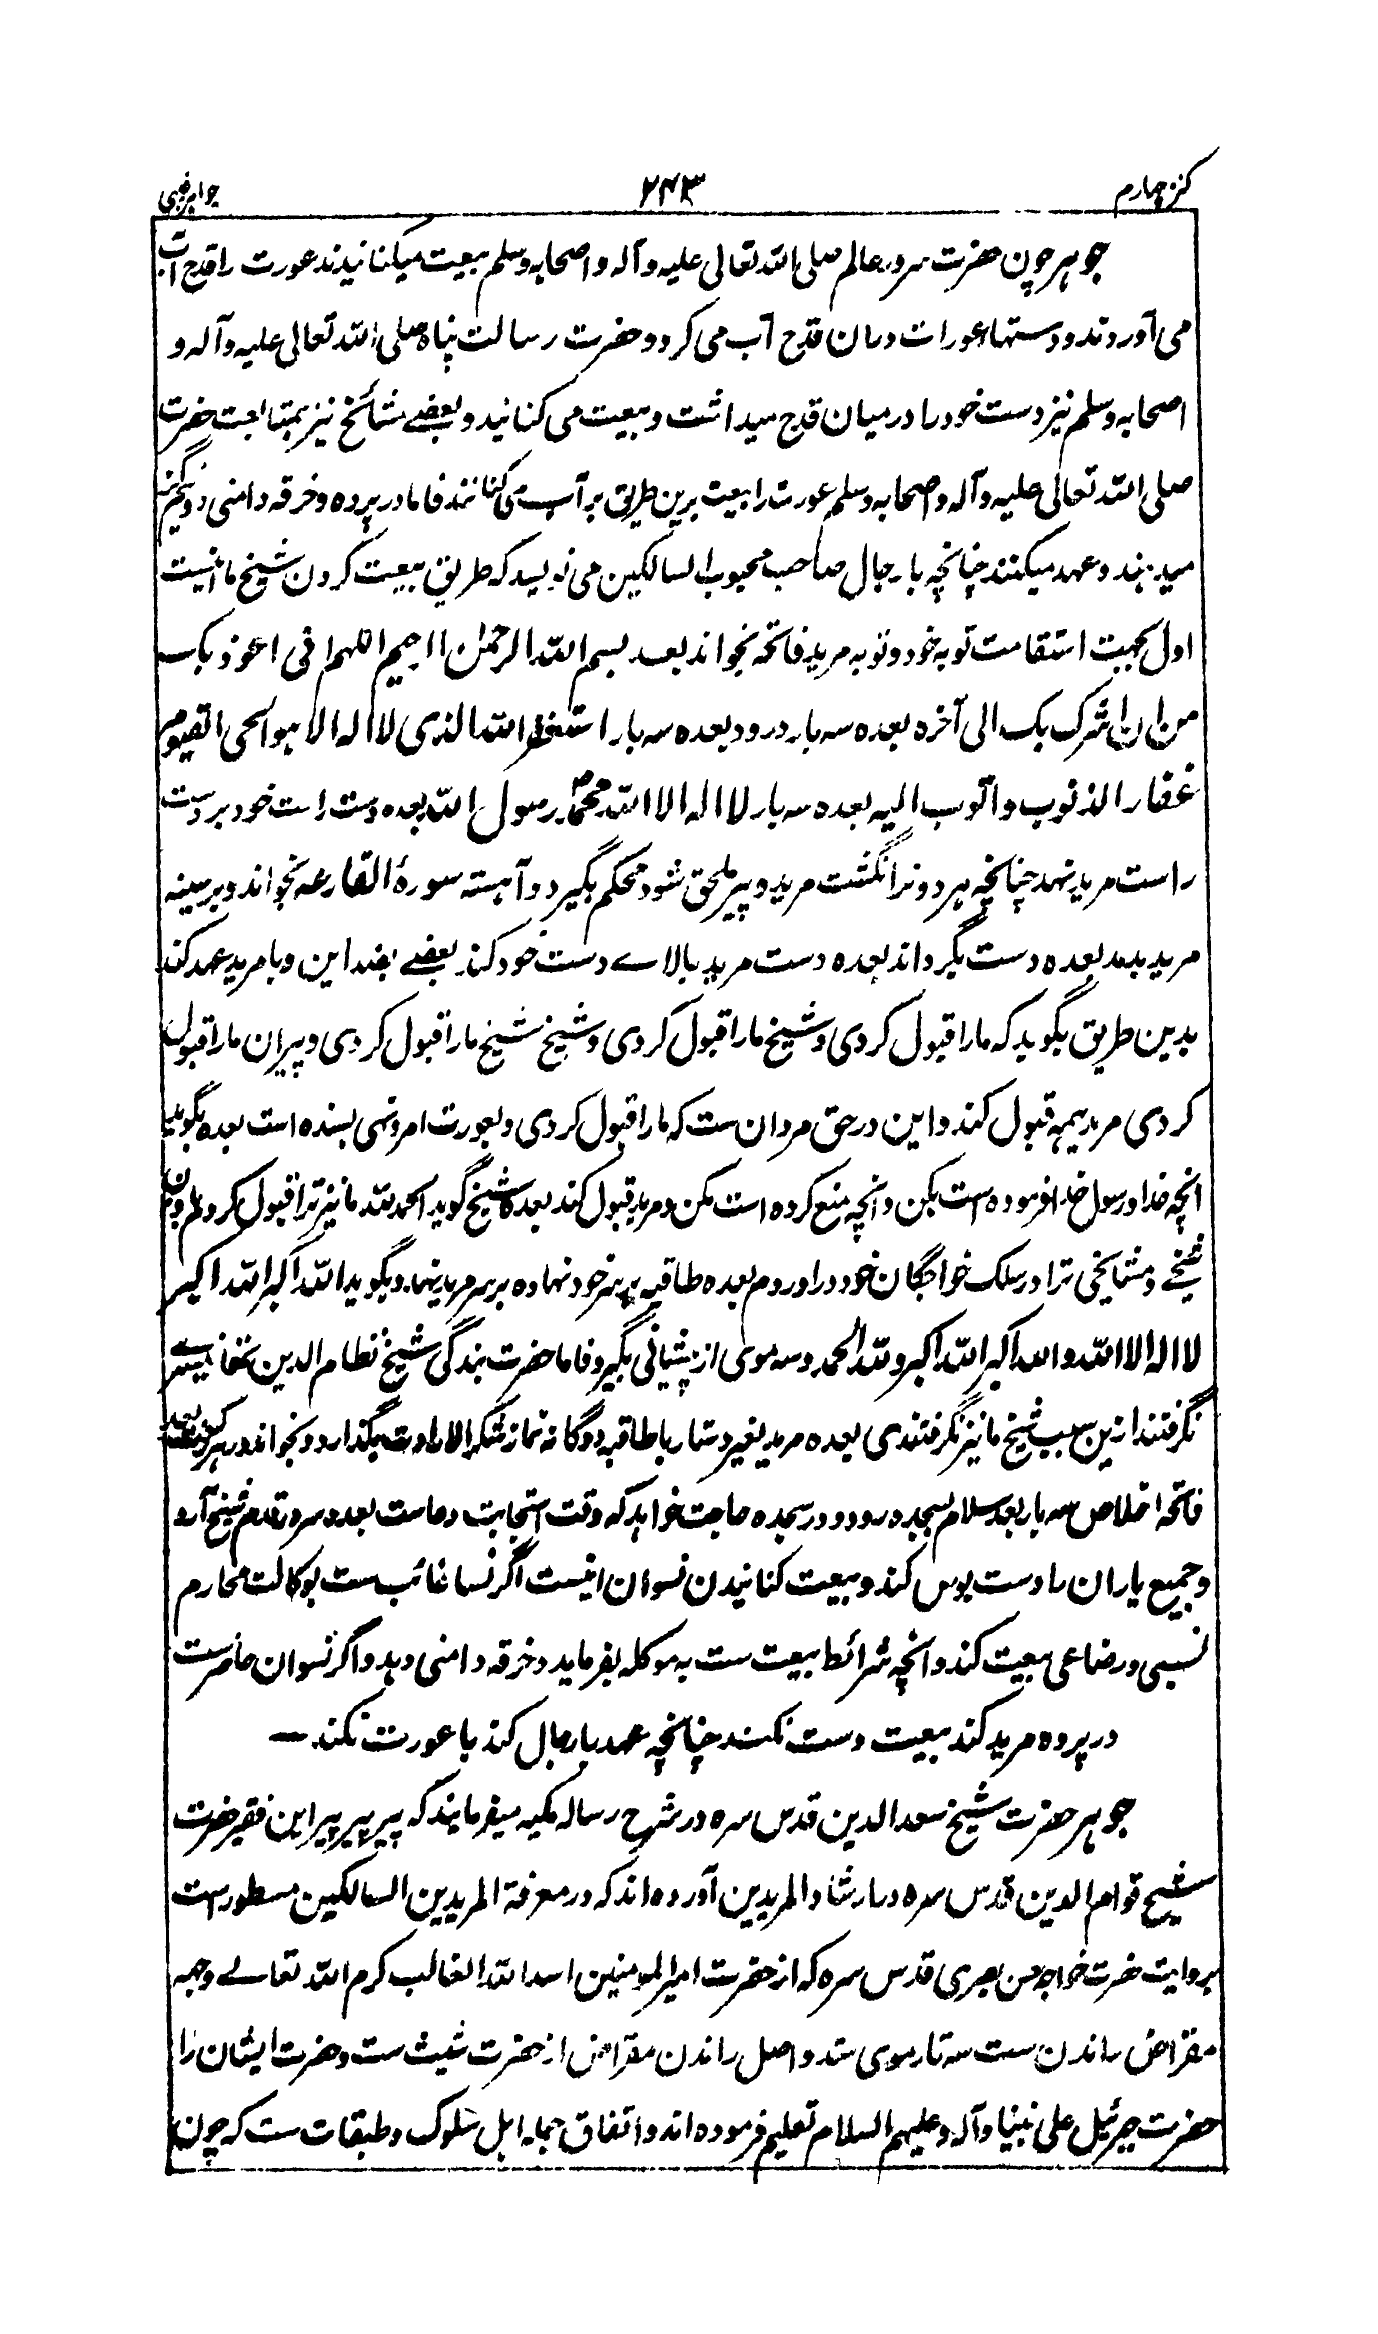 کنز چهارم ۲۴۳ جواهر غیبی
جوهر چون حضرت سرور عالم صلی الله تعالی علیه و آله و اصحابه و سلم بیعت میکنانیدند عورت را قدح آب
می آوردند و دستهاء عورات درمان قدح آب می کرد و حضرت رسالت پناه صلی الله تعالی علیه و آله و
اصحابه و سلم نیز دست خود را در میان قدح میداشت و بیعت می کنانید و بعضے مشائخ نیز بمتابعت حضرت
صلی الله تعالی علیه و آله و اصحابه و سلم عورت را بیعت برین طریق بر آب می کنانند فاما در پرده و خرقه دامنی
میدهند و عهد میکنند چنانچه با رجال صاحب محبوب السالکین می نویسد که طریق بیعت کردن شیخ ما اینست
اول بجهت استقامت توبه خود و توبه مرید فاتحه بخواند بعد بسم الله الرحمن الرحیم اللهم انی اعوذ بک
من ان اشرک بک الی آخره بعده سه بار درود بعده سه بار استغفر الله الذی لا اله الا هو الحی القیوم
غفار الذنوب و اتوب الیه بعده سه بار لا اله الا الله محمد رسول الله بعده دست راست خود بر دست
راست مرید نهد چنانچه هر دو نر انگشت مرید و پیر ملحق شود محکم بگیرد و آهسته سورۀ القارعه بخواند و بر سینه
مرید بدمد بعده دست بگرداند بعده دست مرید بالاے دست خود کند بعضے بضد این و با مرید عهد کند
بدین طریق بگوید که ما را قبول کردی و شیخ ما را قبول کردی و شیخ شیخ ما را قبول کردی و پیران ما را قبول
کردی مرید همه قبول کند و این در حق مردان ست که ما را قبول کردی و بعورت امر و نهی بسنده است بعده بگوید
انچه خدا و رسول خدا فرموده است بکن و انچه منع کرده است مکن و مرید قبول کند بعده شیخ گوید الحمد لله ما نیز ترا قبول کردیم
شیخے و مشایخی ترا در سلک خواجگان خود در آوردم بعده طاقیه بر سر خود نهاده بر سر مرید نهد و بگوید الله اکبر الله اکبر
لا اله الا الله و الله اکبر الله اکبر و لله الحمد و سه موی از پیشانی بگیرد فاما حضرت بندگی شیخ نظام الدین تھانیسرے
نگرفتند ازین سبب شیخ ما نیز نگرفتندی بعده مرید بغیر دستار با طاقیه دوگانه نماز شکر الارادت بگذارد و بخواند در هر رکعت بعد
فاتحه اخلاص سه بار بعد سلام بسجده رود و در سجده حاجت خواهد که وقت استجابت دعاست بعده سر در قدم شیخ آرد
و جمیع یاران را دست بوس کند و بیعت کنانیدن نسوان اینست اگر نسا غائب ست بوکالت محارم
نسبی و رضاعی بیعت کند و انچه شرائط بیعت ست به موکله بفرماید و خرقه دامنی دهد و اگر نسوان حاضرست
در پرده مرید کند بیعت دست نکند چنانچه عهد با رجال کند با عورت نکند —
جوهر حضرت شیخ سعد الدین قدس سره در شرح رساله مکیه میفرمایند که پیر پیر پیر این فقیر حضرت
شیخ قوام الدین قدس سره در ارشاد المریدین آورده اند که در معرفة المریدین السالکین مسطورست
بروایت حضرت خواجه حسن بصری قدس سره که از حضرت امیر المومنین اسد الله الغالب کرم الله تعالے وجهه
مقراض راندن ست سه تار موی ستد و اصل راندن مقراض از حضرت شیث ست و حضرت ایشان را
حضرت جبرئیل علی نبینا و آله و علیهم السلام تعلیم فرموده اند و اتفاق جمله اهل سلوک و طبقات ست که چون